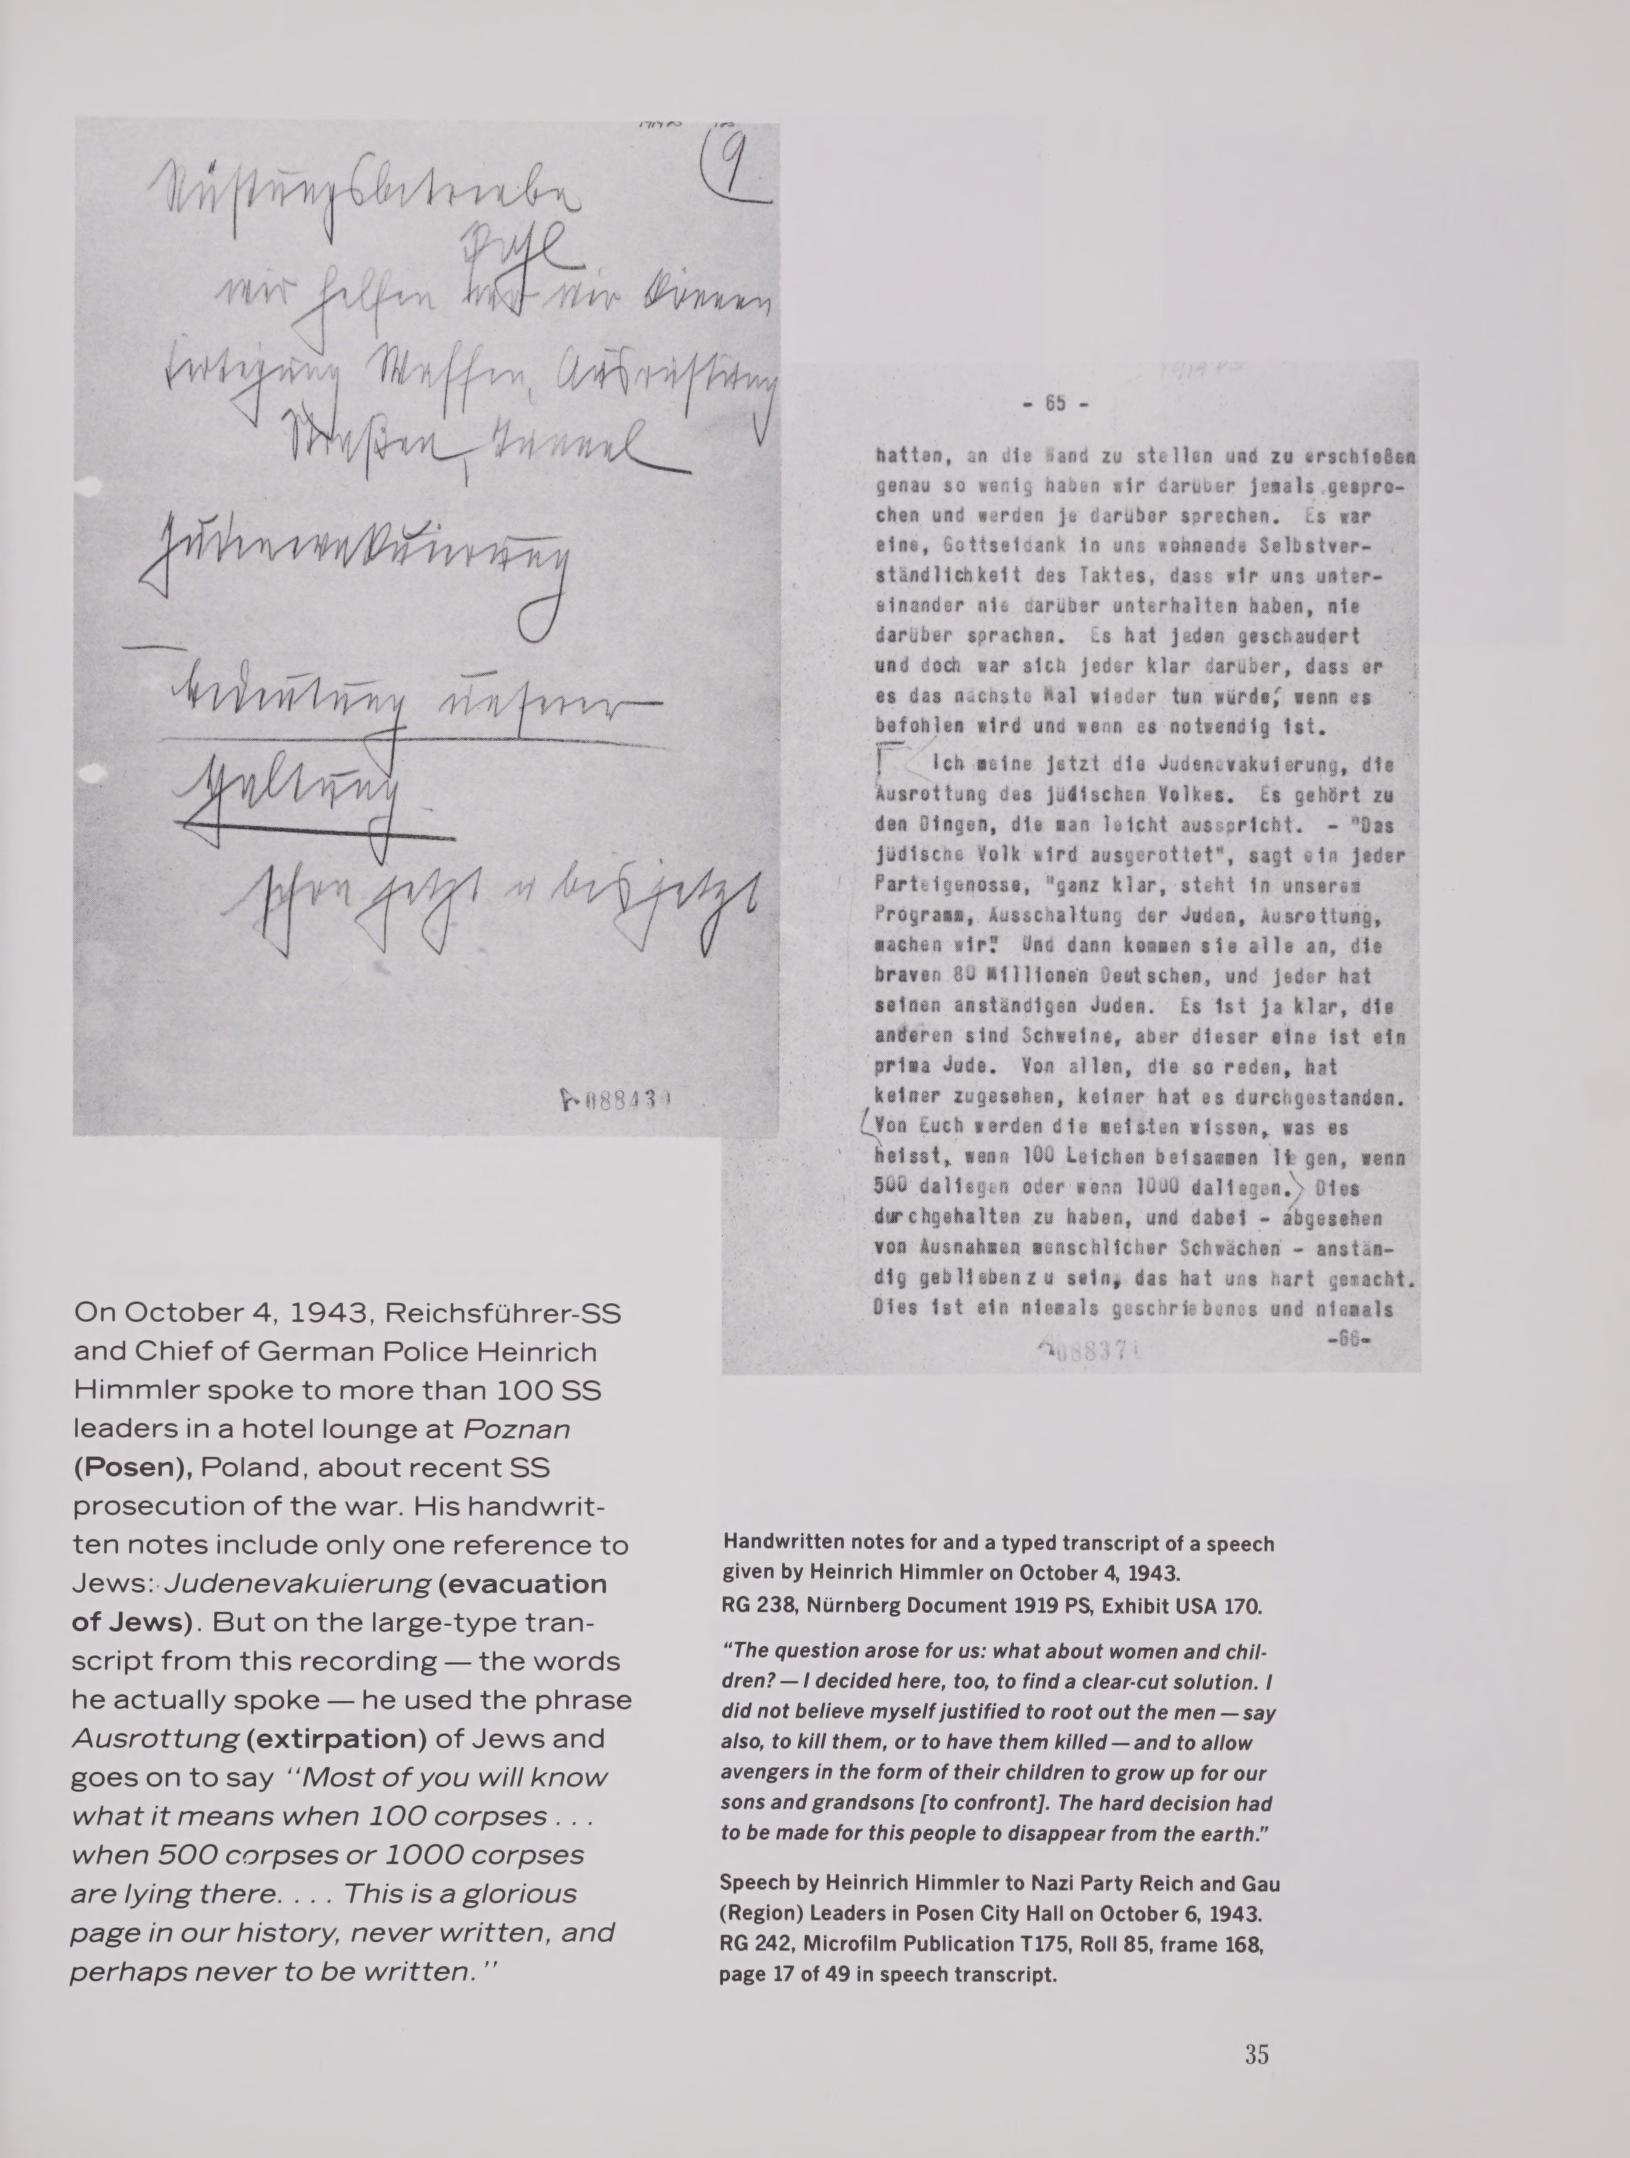 9
Rüstungsbetriebe
Pohl
wir helfen wir können
Fertigung Waffen, Ausrüstung
Straßen, Tunnel
Judenevakuierung
Bedeutung unserer
Haltung
schon jetzt u bis jetzt
- 65 -
hatten, an die Wand zu stellen und zu erschießen
genau so wenig haben wir darüber jemals gespro-
chen und werden je darüber sprechen. Es war
eine, Gottseidank in uns wohnende Selbstver-
ständlichkeit des Taktes, dass wir uns unter-
einander nie darüber unterhalten haben, nie
darüber sprachen. Es hat jeden geschaudert
und doch war sich jeder klar darüber, dass er
es das nächste Mal wieder tun würde, wenn es
befohlen wird und wenn es notwendig ist.
Ich meine jetzt die Judenevakuierung, die
Ausrottung des jüdischen Volkes. Es gehört zu
den Dingen, die man leicht ausspricht. - "Das
jüdische Volk wird ausgerottet", sagt ein jeder
Parteigenosse, "ganz klar, steht in unserem
Programm, Ausschaltung der Juden, Ausrottung,
machen wir." Und dann kommen sie alle an, die
braven 80 Millionen Deutschen, und jeder hat
seinen anständigen Juden. Es ist ja klar, die
anderen sind Schweine, aber dieser eine ist ein
prima Jude. Von allen, die so reden, hat
keiner zugesehen, keiner hat es durchgestanden.
Von Euch werden die meisten wissen, was es
heisst, wenn 100 Leichen beisammen liegen, wenn
500 daliegen oder wenn 1000 daliegen. Dies
durchgehalten zu haben, und dabei - abgesehen
von Ausnahmen menschlicher Schwächen - anstän-
dig geblieben zu sein, das hat uns hart gemacht.
Dies ist ein niemals geschriebenes und niemals
-66-
On October 4, 1943, Reichsführer-SS
and Chief of German Police Heinrich
Himmler spoke to more than 100 SS
leaders in a hotel lounge at Poznan
(Posen), Poland, about recent SS
prosecution of the war. His handwrit-
ten notes include only one reference to
Jews: Judenevakuierung (evacuation
of Jews). But on the large-type tran-
script from this recording — the words
he actually spoke — he used the phrase
Ausrottung (extirpation) of Jews and
goes on to say "Most of you will know
what it means when 100 corpses . . .
when 500 corpses or 1000 corpses
are lying there. . . . This is a glorious
page in our history, never written, and
perhaps never to be written."
Handwritten notes for and a typed transcript of a speech
given by Heinrich Himmler on October 4, 1943.
RG 238, Nürnberg Document 1919 PS, Exhibit USA 170.
"The question arose for us: what about women and chil-
dren? — I decided here, too, to find a clear-cut solution. I
did not believe myself justified to root out the men — say
also, to kill them, or to have them killed — and to allow
avengers in the form of their children to grow up for our
sons and grandsons [to confront]. The hard decision had
to be made for this people to disappear from the earth."
Speech by Heinrich Himmler to Nazi Party Reich and Gau
(Region) Leaders in Posen City Hall on October 6, 1943.
RG 242, Microfilm Publication T175, Roll 85, frame 168,
page 17 of 49 in speech transcript.
35